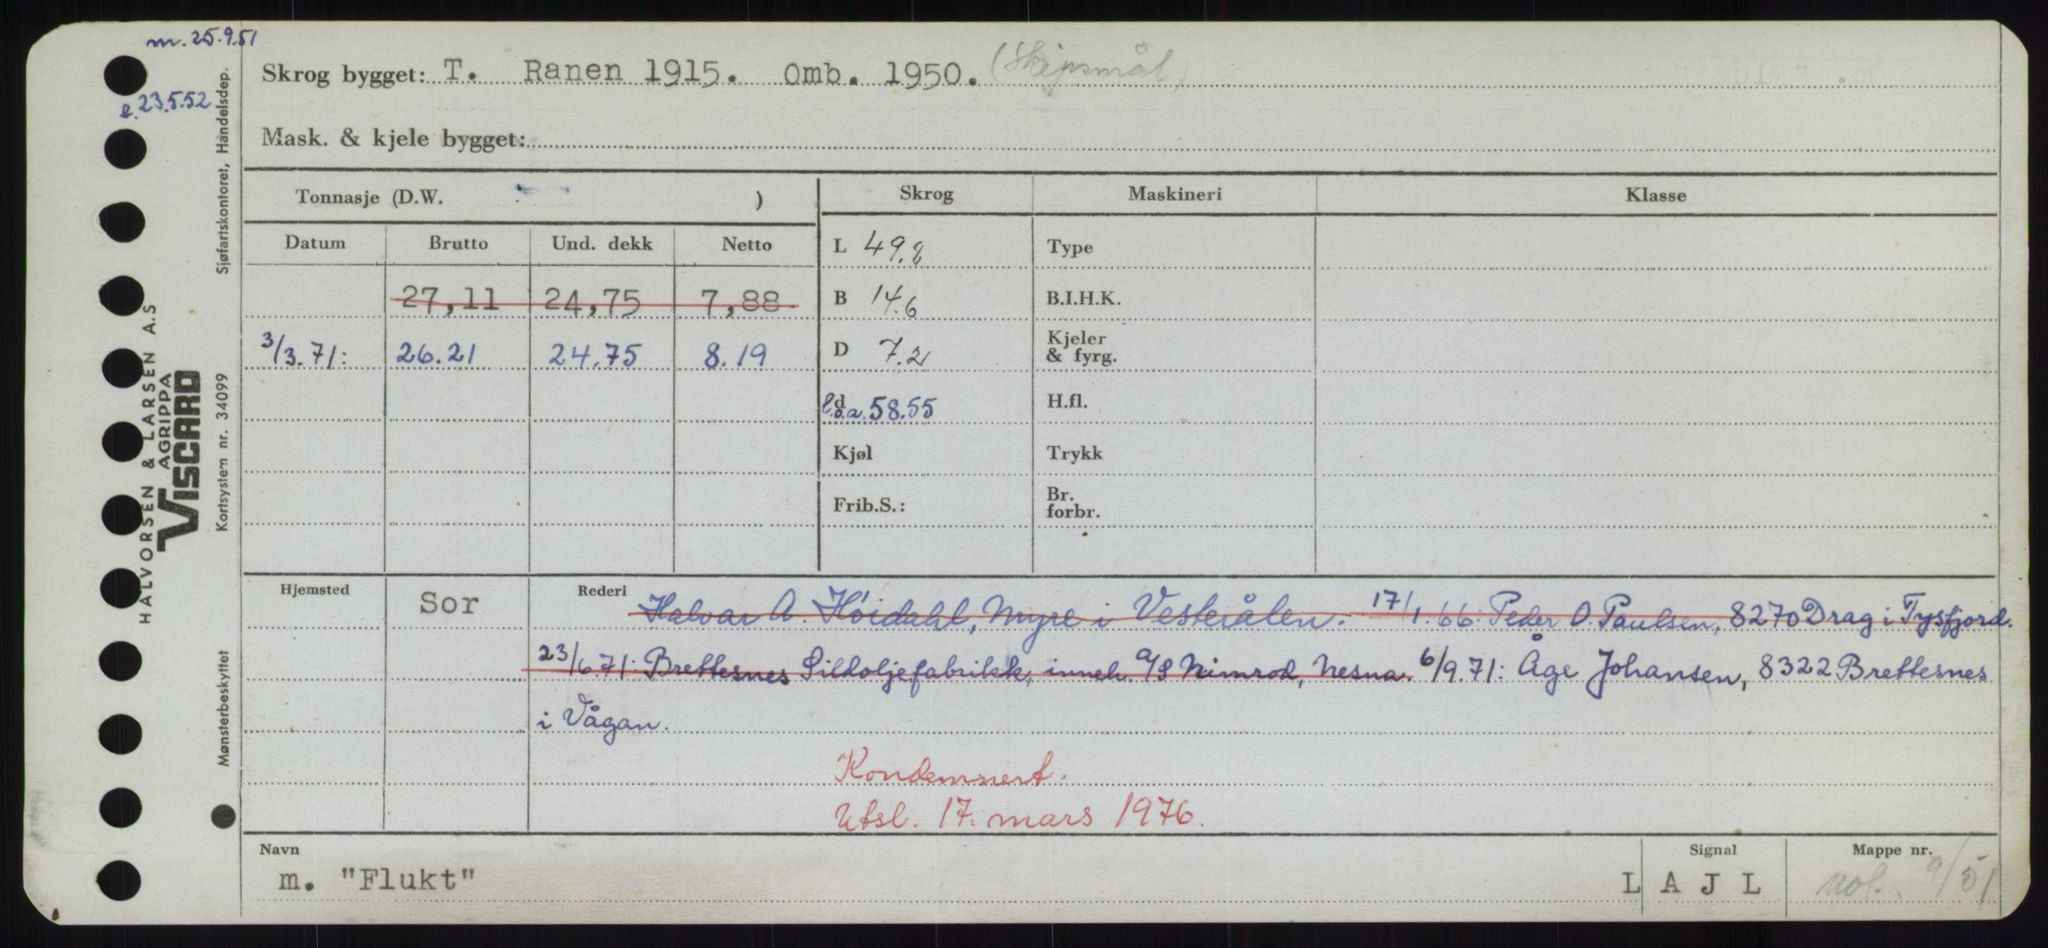 m. 25.9.51
e. 23.5.52
Skrog bygget: T. Ranen 1915. Omb. 1950. (Skipsmål)
Mask. & kjele bygget:
Tonnasje (D.W. )
Skrog
Maskineri
Klasse
Datum Brutto Und. dekk Netto
27,11 24,75 7,88
3/3.71: 26.21 24.75 8.19
L 49.2
B 14.6
D 7.2
d l.o.a. 58.55
Kjøl
Frib.S.:
Type
B.I.H.K.
Kjeler
& fyrg.
H.fl.
Trykk
Br.
forbr.
Hjemsted Sor Rederi Halvar A. Høidahl, Myre i Vesterålen. 17/1.66: Peder O Paulsen, 8270 Drag i Tysfjord.
23/6.71: Brettesnes Sildoljefabrikk, inneh. A/S Nimrod, Nesna. 6/9.71: Åge Johansen, 8322 Brettesnes
i Vågan.
Kondemnert.
Utsl. 17. mars 1976.
Navn Signal Mappe nr.
m. "Flukt" L A J L nol. 9/51
Sjøfartskontoret, Handelsdep.
HALVORSEN & LARSEN A.S
AGRIPPA
VISCARD
Kortsystem nr. 34099
Mønsterbeskyttet